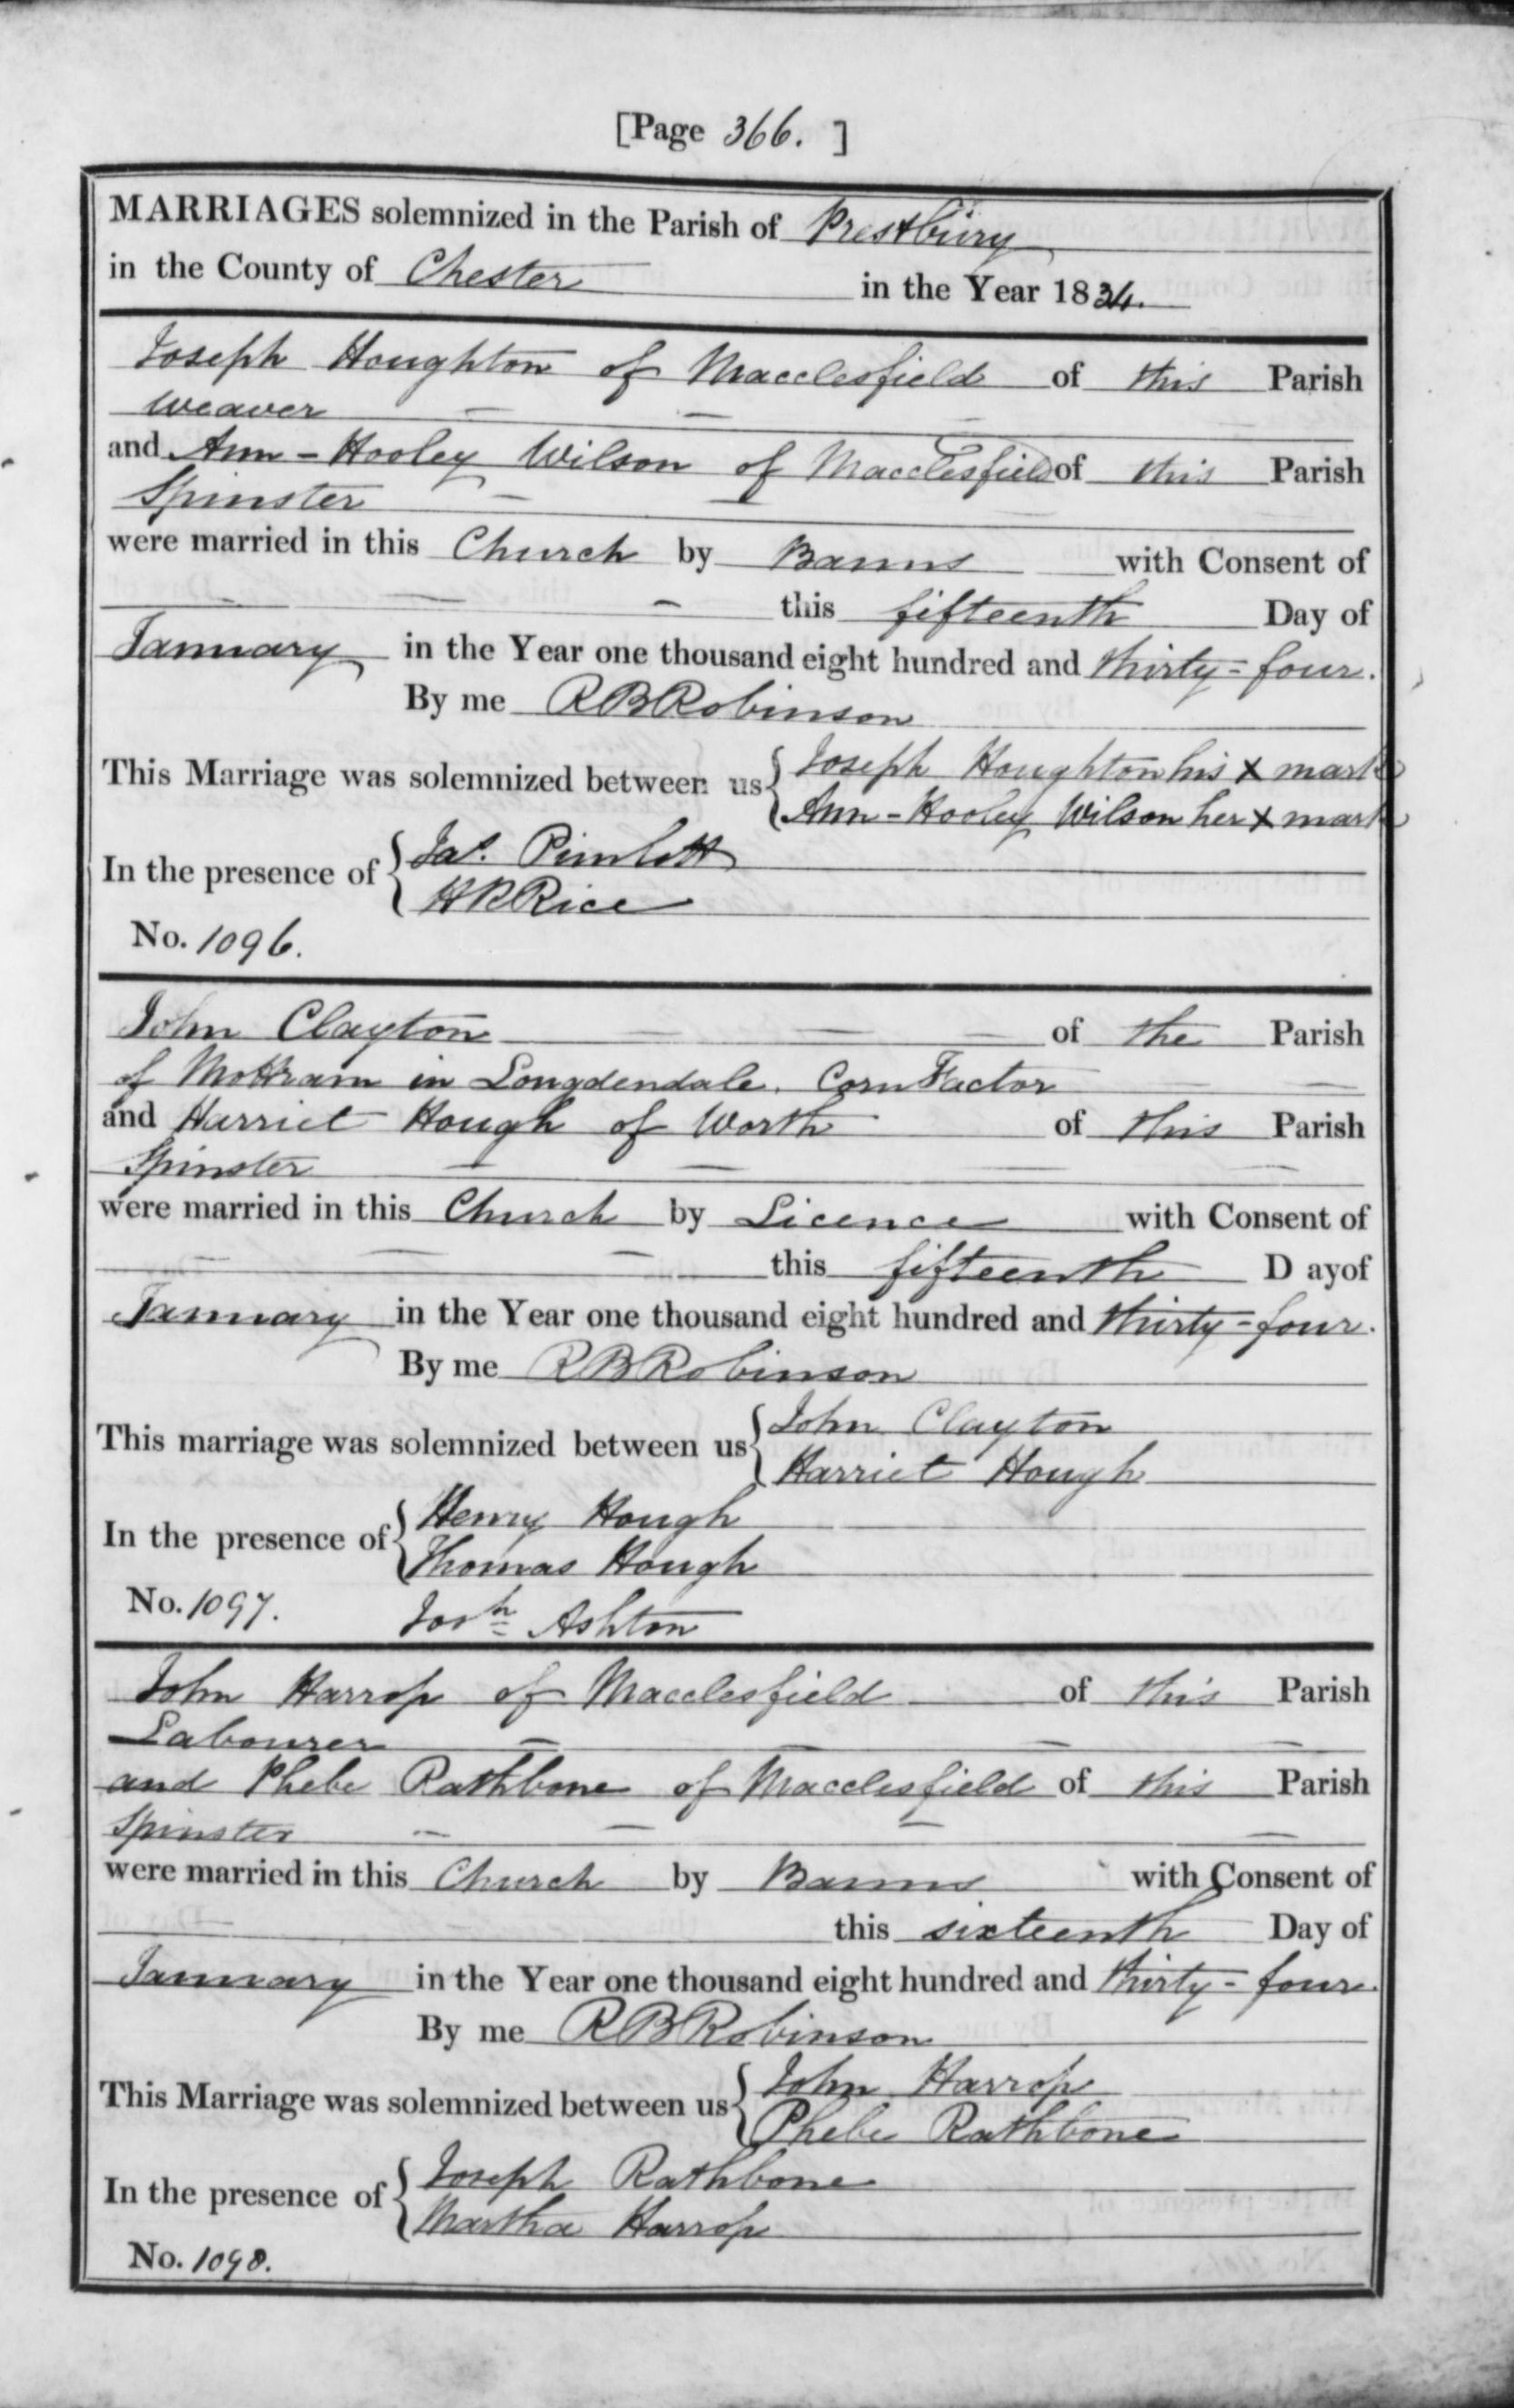 [Page 366. ]
MARRIAGES solemnized in the Parish of Prestbury
in the County of Chester in the Year 1834.
Joseph Houghton of Macclesfield of this Parish
Weaver
and Ann-Hooley Wilson of Macclesfield of this Parish
Spinster
were married in this Church by Banns with Consent of
this fifteenth Day of
January in the Year one thousand eight hundred and thirty=four.
By me RBRobinson
This Marriage was solemnized between us { Joseph Houghton his X mark
Ann-Hooley Wilson her X mark
In the presence of { Jas. Pimlott
HRRice
No. 1096.
John Clayton of the Parish
of Mottram in Longdendale. Corn Factor
and Harriet Hough of Worth of this Parish
Spinster
were married in this Church by Licence with Consent of
this fifteenth D ayof
January in the Year one thousand eight hundred and thirty=four.
By me RBRobinson
This marriage was solemnized between us { John Clayton
Harriet Hough
In the presence of { Henry Hough
Thomas Hough
No. 1097. Josh Ashton
John Harrop of Macclesfield of this Parish
Labourer
and Phebe Rathbone of Macclesfield of this Parish
Spinster
were married in this Church by Banns with Consent of
this sixteenth Day of
January in the Year one thousand eight hundred and thirty=four.
By me RBRobinson
This Marriage was solemnized between us { John Harrop
Phebe Rathbone
In the presence of { Joseph Rathbone
Martha Harrop
No. 1098.